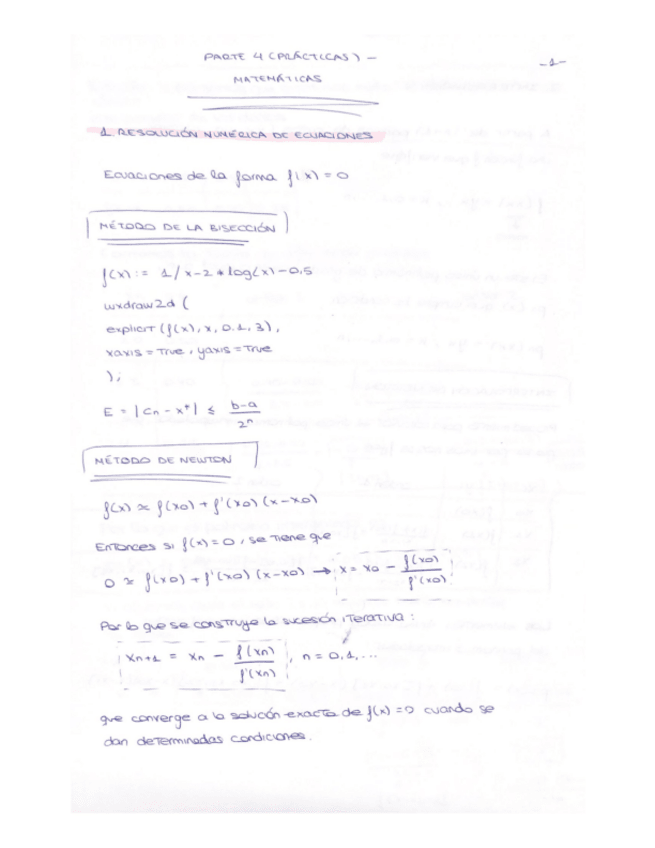 PARTE 4 (PRÁCTICAS) - -1-
MATEMÁTICAS
1. RESOLUCIÓN NUMÉRICA DE ECUACIONES
Ecuaciones de la forma f(x) = 0
MÉTODO DE LA BISECCIÓN
f(x) := 1/x-2*log(x)-0,5
wxdraw2d (
explicit (f(x), x, 0.1, 3),
xaxis = True, yaxis = True
);
E = |Cn - x*| ≤ b-a / 2^n
MÉTODO DE NEWTON
f(x) ≈ f(x0) + f'(x0) (x-x0)
Entonces si f(x) = 0, se tiene que
0 ≈ f(x0) + f'(x0) (x-x0) → x = x0 - f(x0) / f'(x0)
Por lo que se construye la sucesión iterativa:
xn+1 = xn - f(xn) / f'(xn), n = 0,1,...
que converge a la solución exacta de f(x) = 0 cuando se
dan determinadas condiciones.